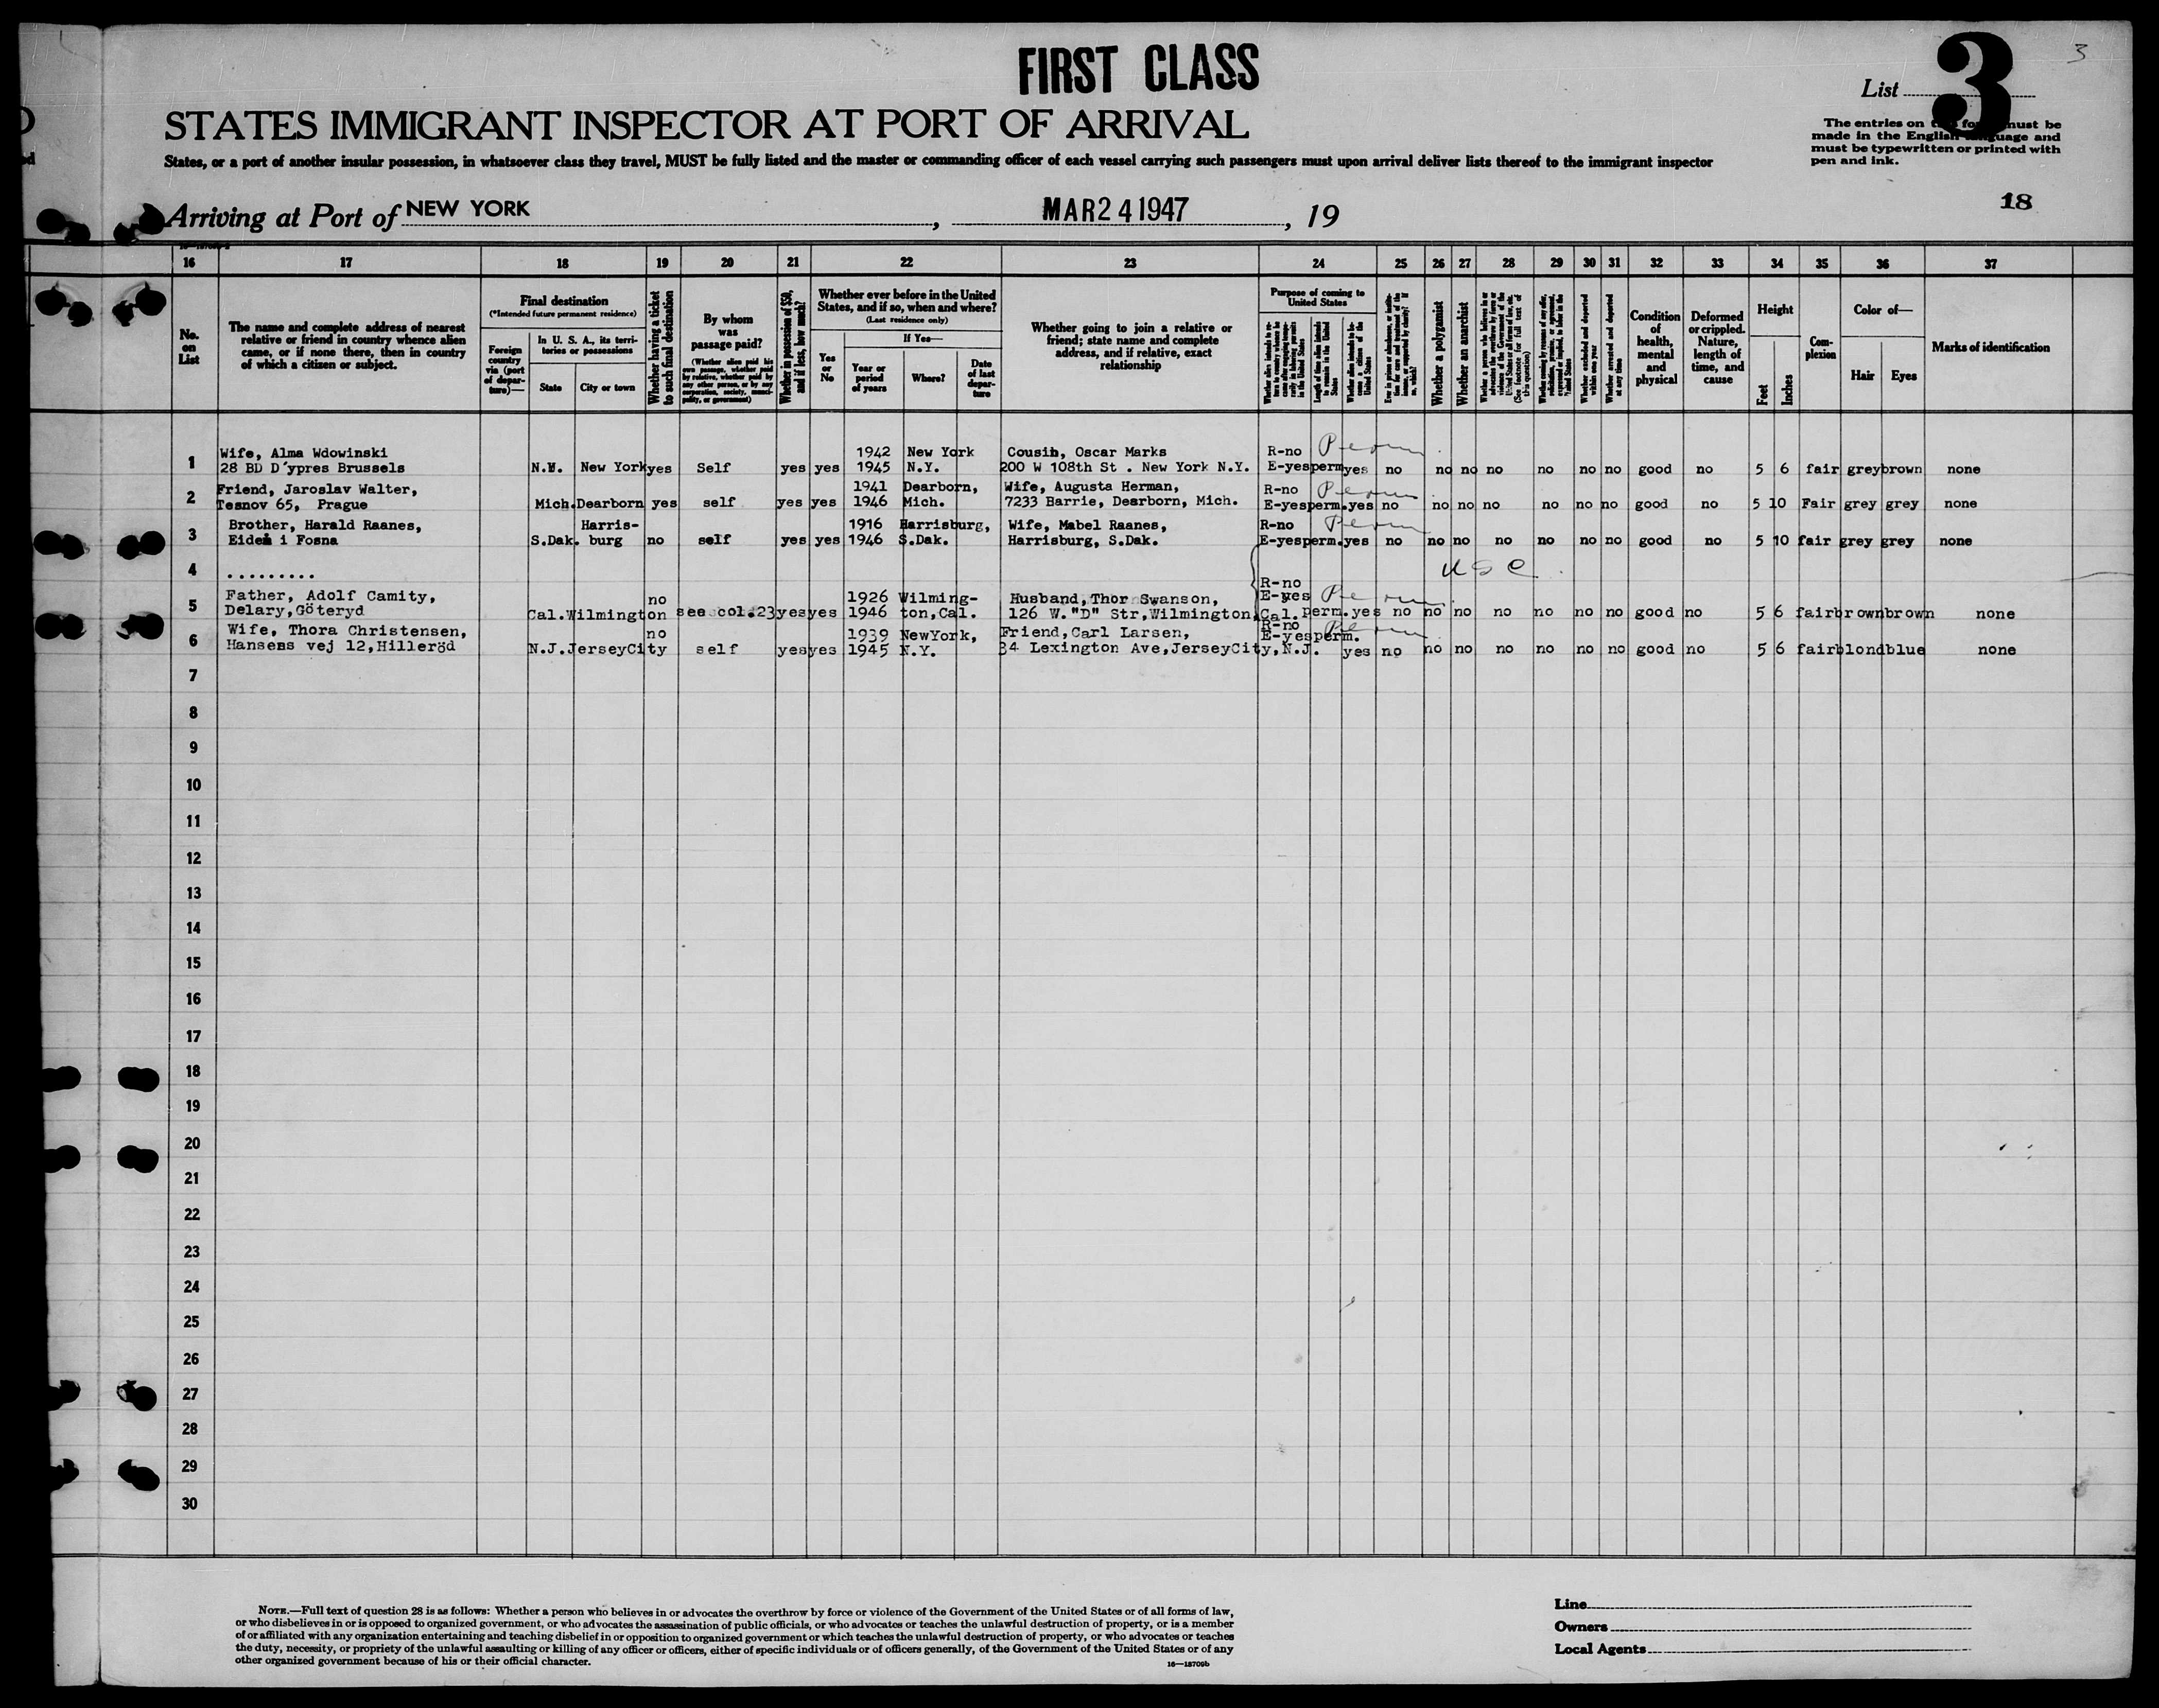 FIRST CLASS
3
List
3
STATES IMMIGRANT INSPECTOR AT PORT OF ARRIVAL
The entries on this form must be
made in the English language and
must be typewritten or printed with
pen and ink.
States, or a port of another insular possession, in whatsoever class they travel, MUST be fully listed and the master or commanding officer of each vessel carrying such passengers must upon arrival deliver lists thereof to the immigrant inspector
Arriving at Port of NEW YORK, MAR 24 1947, 19
18
16 17 18 19 20 21 22 23 24 25 26 27 28 29 30 31 32 33 34 35 36 37
No. on List
The name and complete address of nearest
relative or friend in country whence alien
came, or if none there, then in country
of which a citizen or subject.
Final destination
(*Intended future permanent residence)
Foreign country via (port of departure)—
In U. S. A., its territories or possessions
State
City or town
Whether having a ticket to such final destination
By whom was passage paid?
(Whether alien paid his own passage, whether paid by relative, whether paid by any other person, or by any corporation, society, municipality, or government)
Whether in possession of $50, and if less, how much?
Whether ever before in the United
States, and if so, when and where?
(Last residence only)
Yes or No
If Yes—
Year or period of years
Where?
Date of last departure
Whether going to join a relative or
friend; state name and complete
address, and if relative, exact
relationship
Purpose of coming to
United States
Length of time alien intends to remain in the United States
Whether alien intends to become a citizen of the United States
Whether a polygamist
Whether an anarchist
(See footnote for full text of this question)
Whether excluded and deported within one year
Whether arrested and deported at any time
Condition of health, mental and physical
Deformed or crippled. Nature, length of time, and cause
Height
Feet
Inches
Complexion
Color of—
Hair
Eyes
Marks of identification
Wife, Alma Wdowinski 1942 New York Cousin, Oscar Marks R-no Perm
1 28 BD D'ypres Brussels N.Y. New York yes Self yes yes 1945 N.Y. 200 W 108th St . New York N.Y. E-yes perm yes no no no no no no no good no 5 6 fair grey brown none
Friend, Jaroslav Walter, 1941 Dearborn, Wife, Augusta Herman, R-no Perm
2 Tesnov 65, Prague Mich. Dearborn yes self yes yes 1946 Mich. 7233 Barrie, Dearborn, Mich. E-yes perm. yes no no no no no no no good no 5 10 Fair grey grey none
Brother, Harald Raanes, Harris- 1916 Harrisburg, Wife, Mabel Raanes, R-no Perm
3 Eidem i Fosna S.Dak. burg no self yes yes 1946 S.Dak. Harrisburg, S.Dak. E-yes perm. yes no no no no no no no good no 5 10 fair grey grey none
4 ......... U S C
R-no
Father, Adolf Camity, no 1926 Wilming- Husband, Thor Swanson, E-yes Perm
5 Delary, Göteryd Cal. Wilmington see col. 23 yes yes 1946 ton, Cal. 126 W. "D" Str, Wilmington, Cal. perm. yes no no no no no no no good no 5 6 fair brown brown none
Wife, Thora Christensen, no 1939 NewYork, Friend, Carl Larsen, R-no E-yes perm. Perm
6 Hansens vej 12, Hilleröd N.J. JerseyCity self yes yes 1945 N.Y. 34 Lexington Ave, JerseyCity, N.J. yes no no no no no no no good no 5 6 fair blond blue none
7
8
9
10
11
12
13
14
15
16
17
18
19
20
21
22
23
24
25
26
27
28
29
30
NOTE.—Full text of question 28 is as follows: Whether a person who believes in or advocates the overthrow by force or violence of the Government of the United States or of all forms of law,
or who disbelieves in or is opposed to organized government, or who advocates the assassination of public officials, or who advocates or teaches the unlawful destruction of property, or is a member
of or affiliated with any organization entertaining and teaching disbelief in or opposition to organized government or which teaches the unlawful destruction of property, or who advocates or teaches
the duty, necessity, or propriety of the unlawful assaulting or killing of any officer or officers, either of specific individuals or of officers generally, of the Government of the United States or of any
other organized government because of his or their official character.
16—18709b
Line
Owners
Local Agents